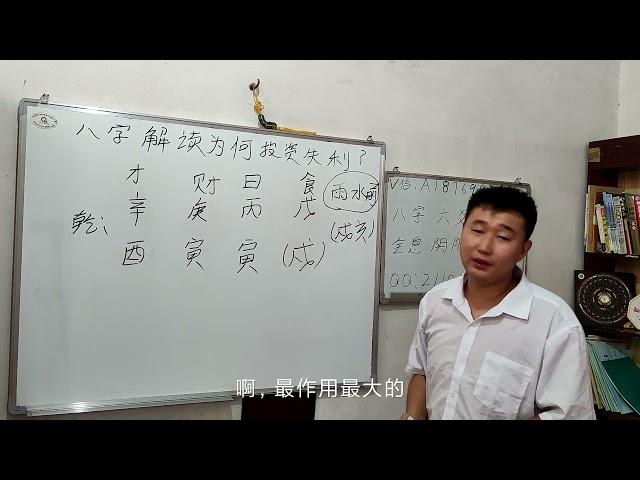 八字解读为何投资失利？
才 财 日 食
乾： 辛 庚 丙 戊
酉 寅 寅 （戌）
雨水前
（戌亥）
八字 六
全息 阴阳
啊，最作用最大的